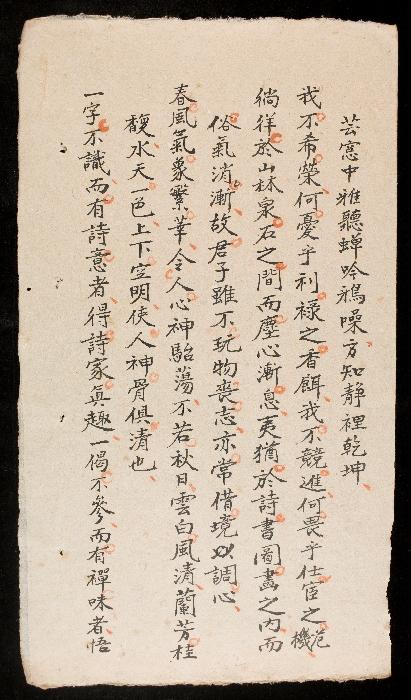 芸窓中雅聽蟬吟鴉噪方知靜裡乾坤
我不希榮何憂乎利祿之香餌我不競進何畏乎仕宦之危機
徜徉於山林泉石之間而塵心漸息夷猶於詩書圖畫之內而
俗氣消漸故君子雖不玩物喪志亦常借境以調心
春風氣象繁華令人心神駘蕩不若秋日雲白風清蘭芳桂
馥水天一色上下空明使人神骨俱清也
一字不識而有詩意者得詩家真趣一偈不參而有禪味者悟